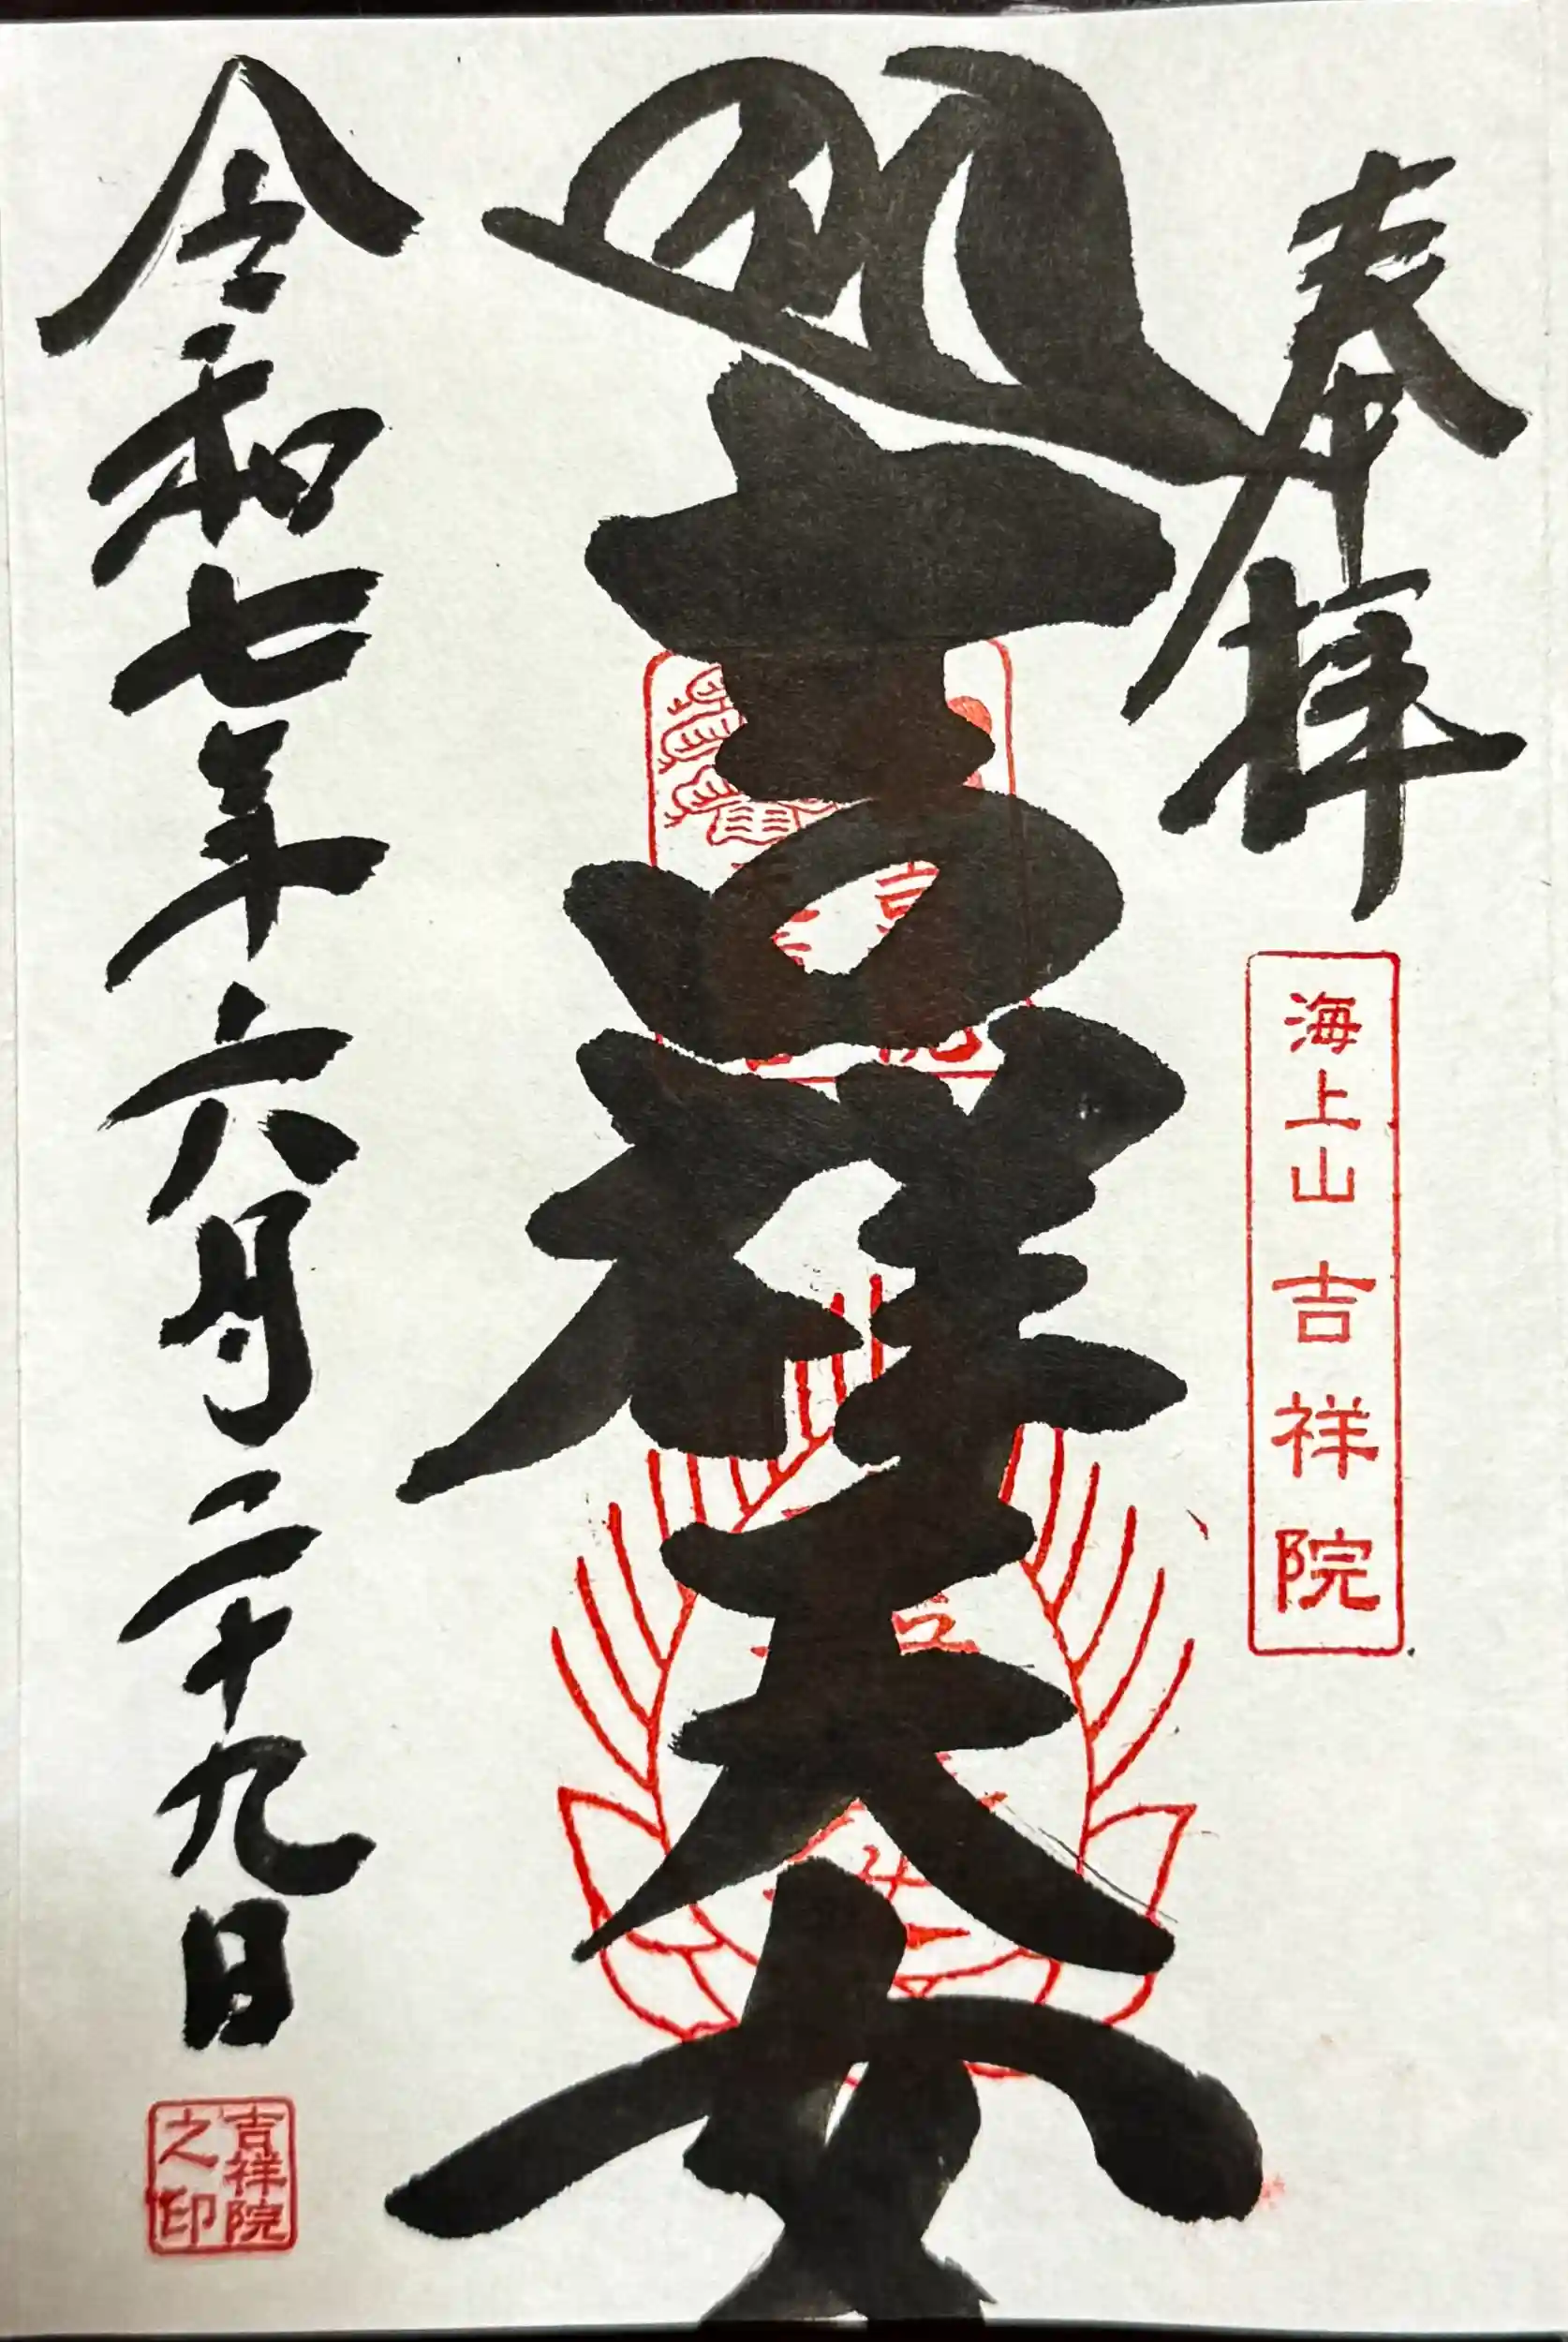 奉拝
海上山 吉祥院
吉祥天女
令和七年六月二十九日
吉祥院
之印